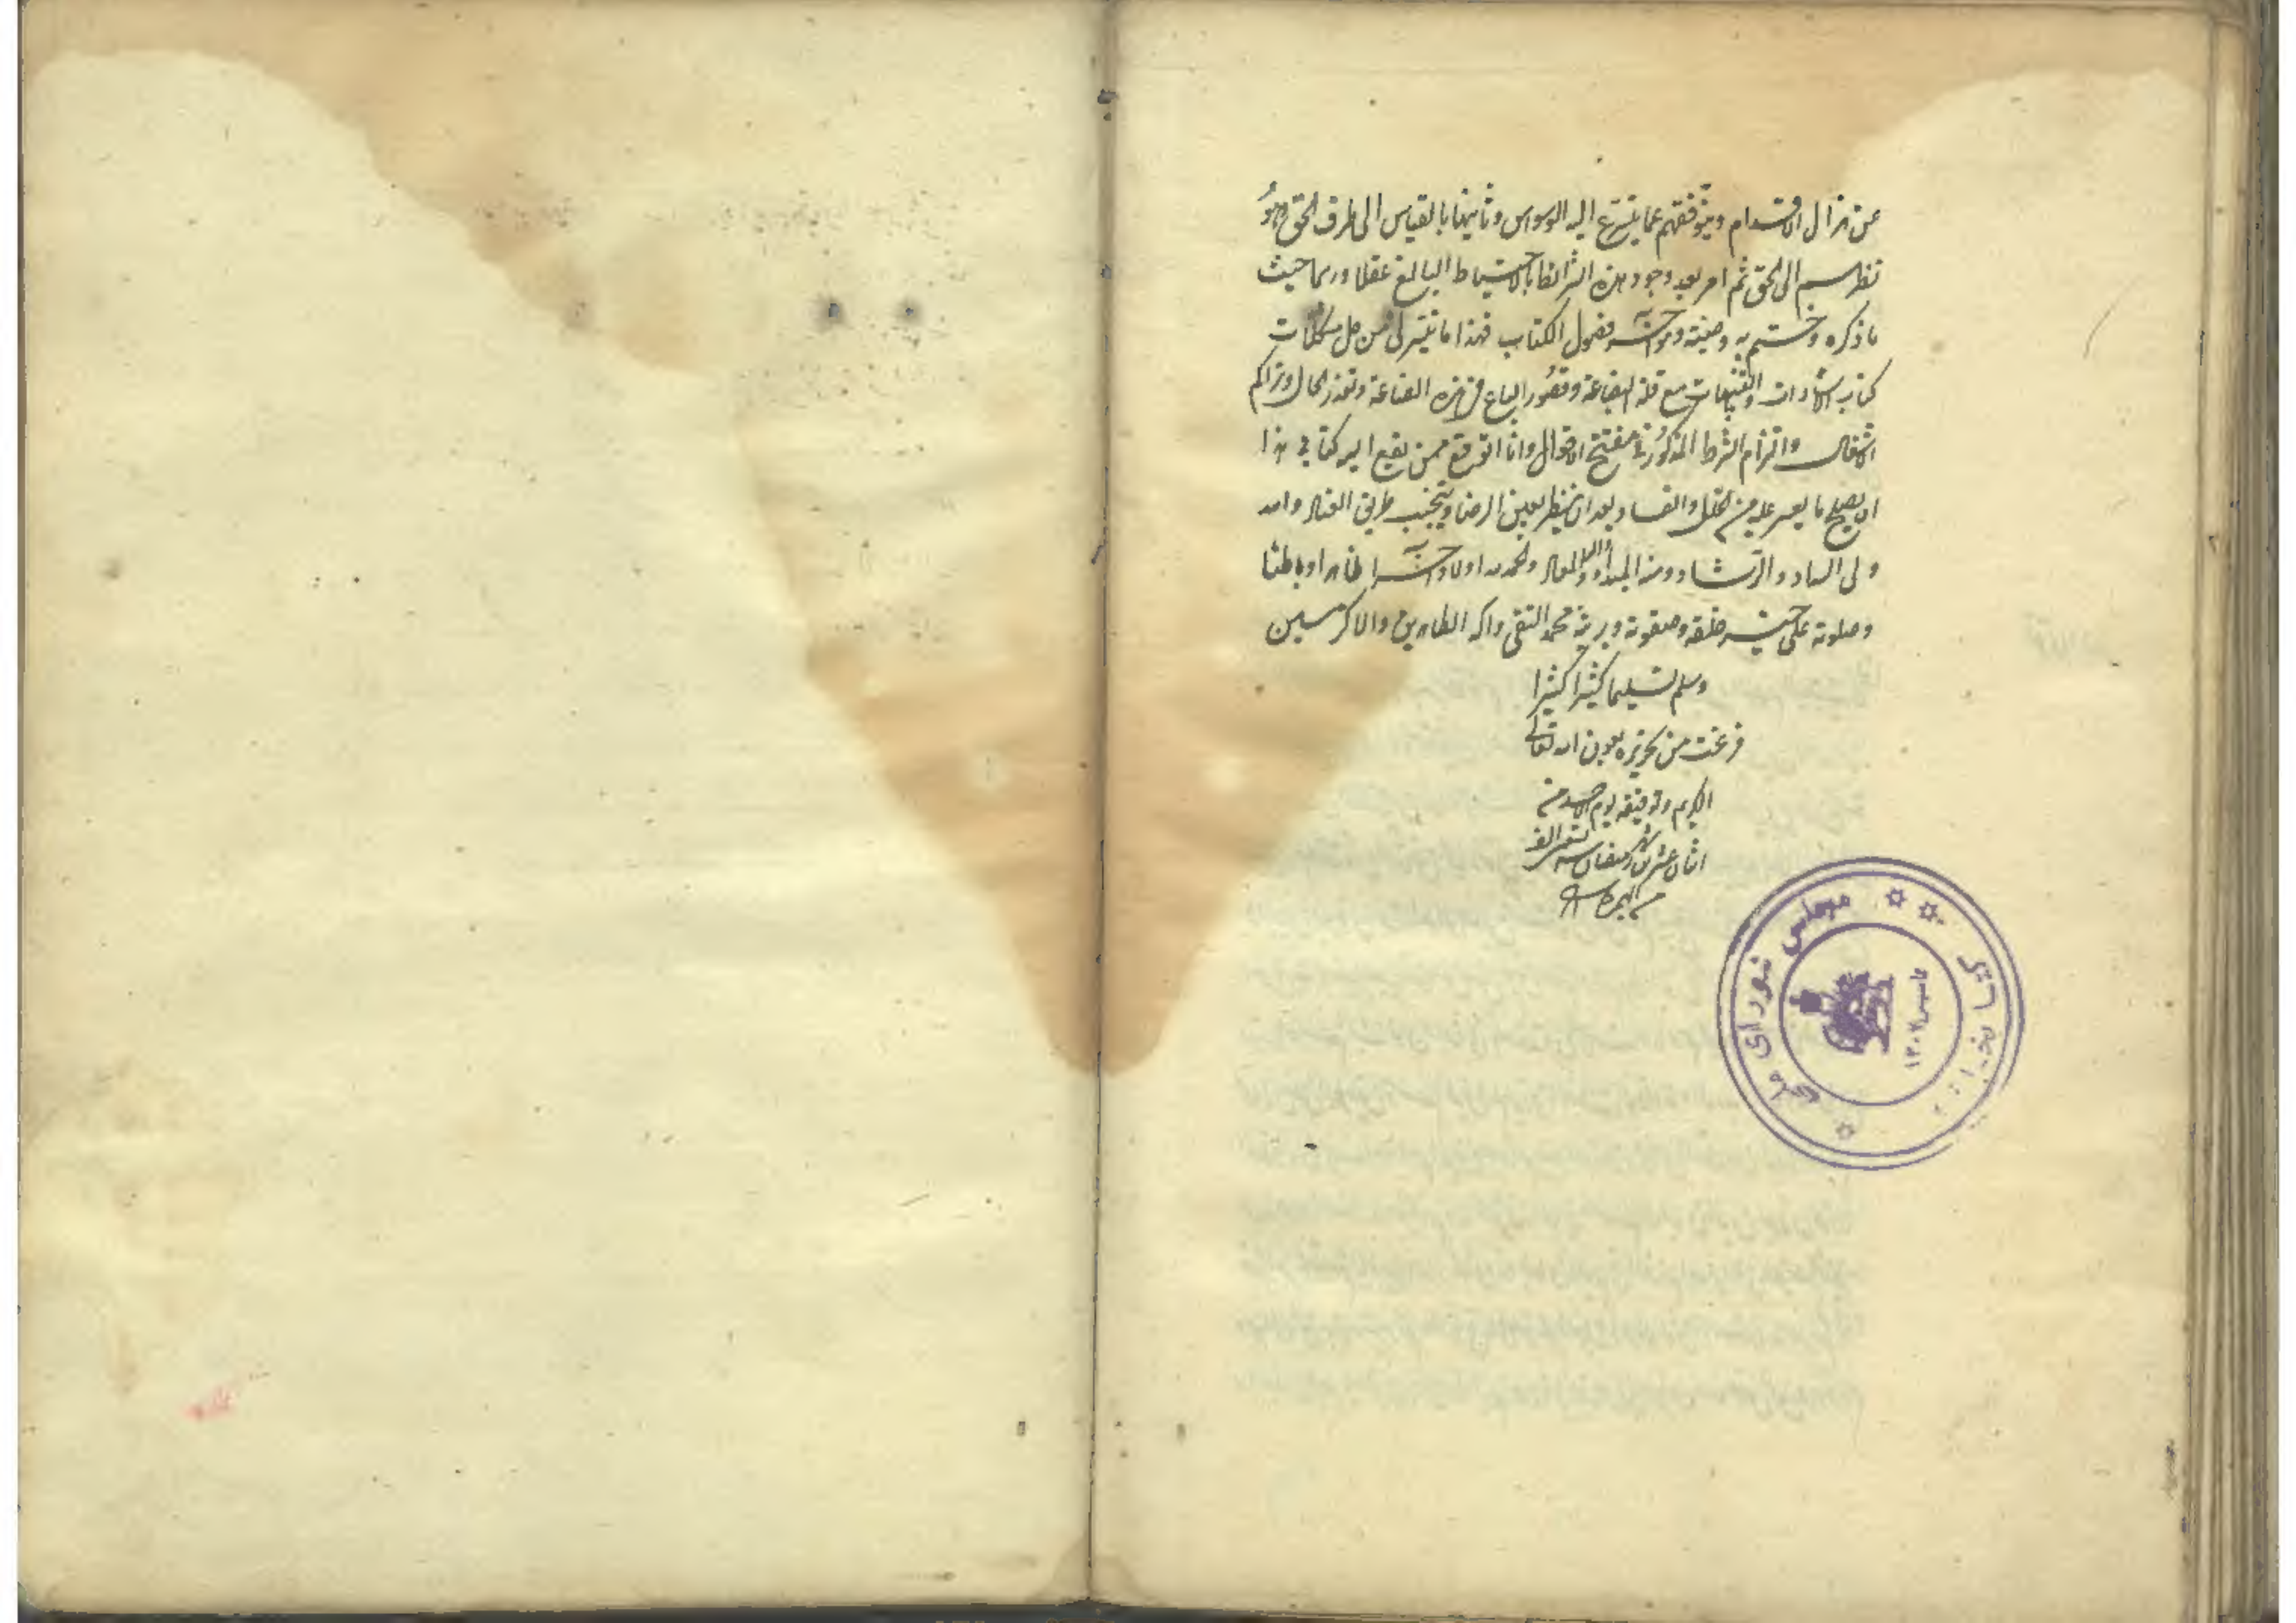 عن مزال الاقدام وبتوقفهم عما يتسرع اليه الوسواس وثانيها بالقياس الى طرف الحق وهو
نظرهم الى الحق ثم امر بعد وجود هذه الشرائط بالاحتياط البالغ عقلا حيث
ما ذكره وختم به وصيته وهو آخر فصول الكتاب فهذا ما تيسر لى من حل مشكلات
كتاب الاشارات والتنبيهات مع قلة البضاعة وقصور الباع فى هذه الصناعة وتعذر الحال وتراكم
الاشغال والتزام الشرط المذكور فى مفتتح الاقوال وانا اتوقع ممن يقع اليه كتابى هذا
ان يصلح ما يعثر عليه من الخلل والفساد بعد ان ينظر بعين الرضا ويتجنب طريق العناد والله
ولى السداد والرشاد ومنه المبدأ واليه المعاد والحمد لله اولا وآخرا ظاهرا وباطنا
وصلوته على خير خلقه وصفوته وبريته محمد التقى وآله الطاهرين والاكرمين
وسلم تسليما كثيرا كثيرا
فرغت من تحريره بعون الله تعالى
الكريم وتوفيقه يوم الاحد من
اثنان عشرين شهر رمضان سنه الف
من الهجرة
كتابخانه مجلس شورای ملی
تاسیس ۱۳۰۲